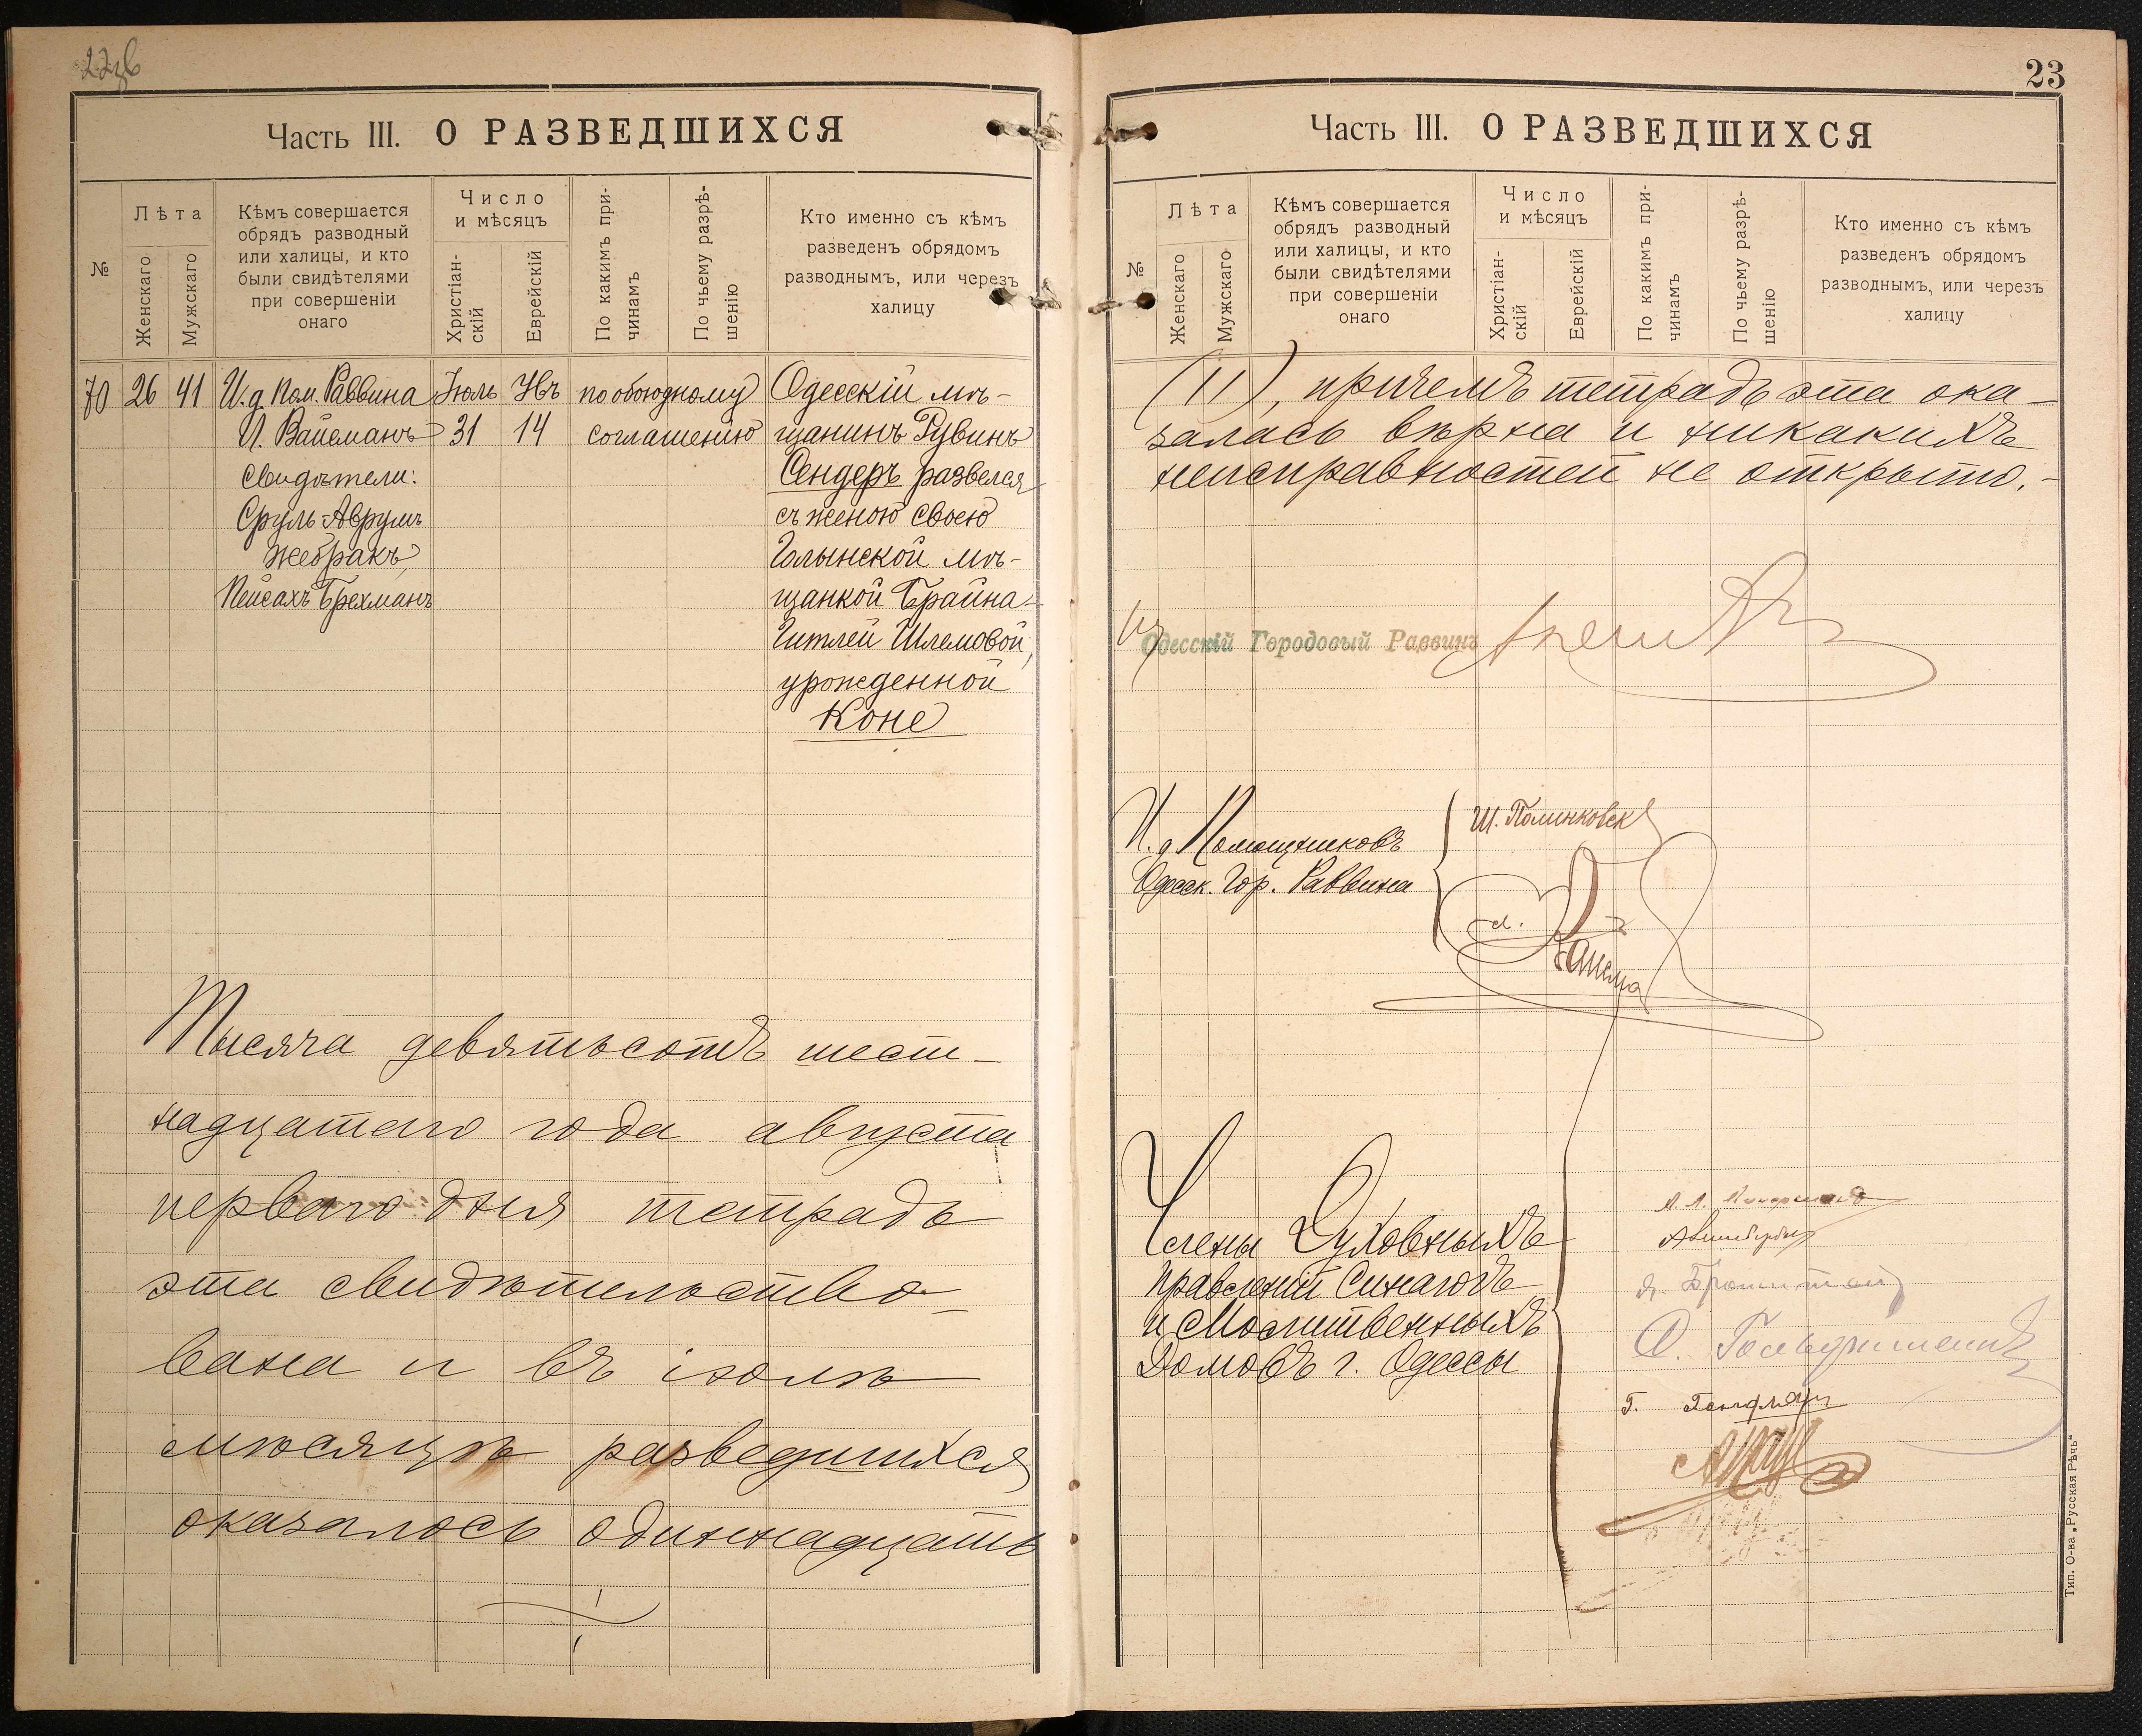 Часть III. О РАЗВЕДШИХСЯ
№
Лѣта
Женскаго
Мужскаго
Кѣмъ совершается
обрядъ разводный
или халицы, и кто
были свидѣтелями
при совершеніи
онаго
Число
и мѣсяцъ
Христіан-
скій
Еврейскій
По какимъ при-
чинамъ
По чьему разрѣ-
шенію
Кто именно съ кѣмъ
разведенъ обрядомъ
разводнымъ, или черезъ
халицу
70 26 41 И.д. Пом. Раввина Іюль Увъ по обоюдному Одесскій мѣ-
И. Вайсманъ 31 14 соглашенію щанинъ Рувинъ
свидѣтели: Сендеръ развелся
Сруль-Аврумъ съ женою своею
Жебракъ, Голынской мѣ-
Пейсахъ Брехманъ щанкой Брайна-
Гитлей Шлемовой,
урожденной
Коне
Тысяча девятьсотъ шест-
надцатаго года августа
перваго дня тетрадь
эта свидѣтельство-
вана и въ іюлѣ
мѣсяцѣ разведшихся
оказалось одиннадцать
23
Часть III. О РАЗВЕДШИХСЯ
№
Лѣта
Женскаго
Мужскаго
Кѣмъ совершается
обрядъ разводный
или халицы, и кто
были свидѣтелями
при совершеніи
онаго
Число
и мѣсяцъ
Христіан-
скій
Еврейскій
По какимъ при-
чинамъ
По чьему разрѣ-
шенію
Кто именно съ кѣмъ
разведенъ обрядомъ
разводнымъ, или черезъ
халицу
(11), причемъ тетрадь эта ока-
залась вѣрна и никакихъ
неисправностей не открыто.-
Одесскій Городовый Раввинъ
И. д. Помощниковъ
Одесск. Гор. Раввина
Члены Духовныхъ
Правленій Синагогъ
и Молитвенныхъ
Домовъ г. Одессы
Тип. О-ва „Русская Рѣчь“